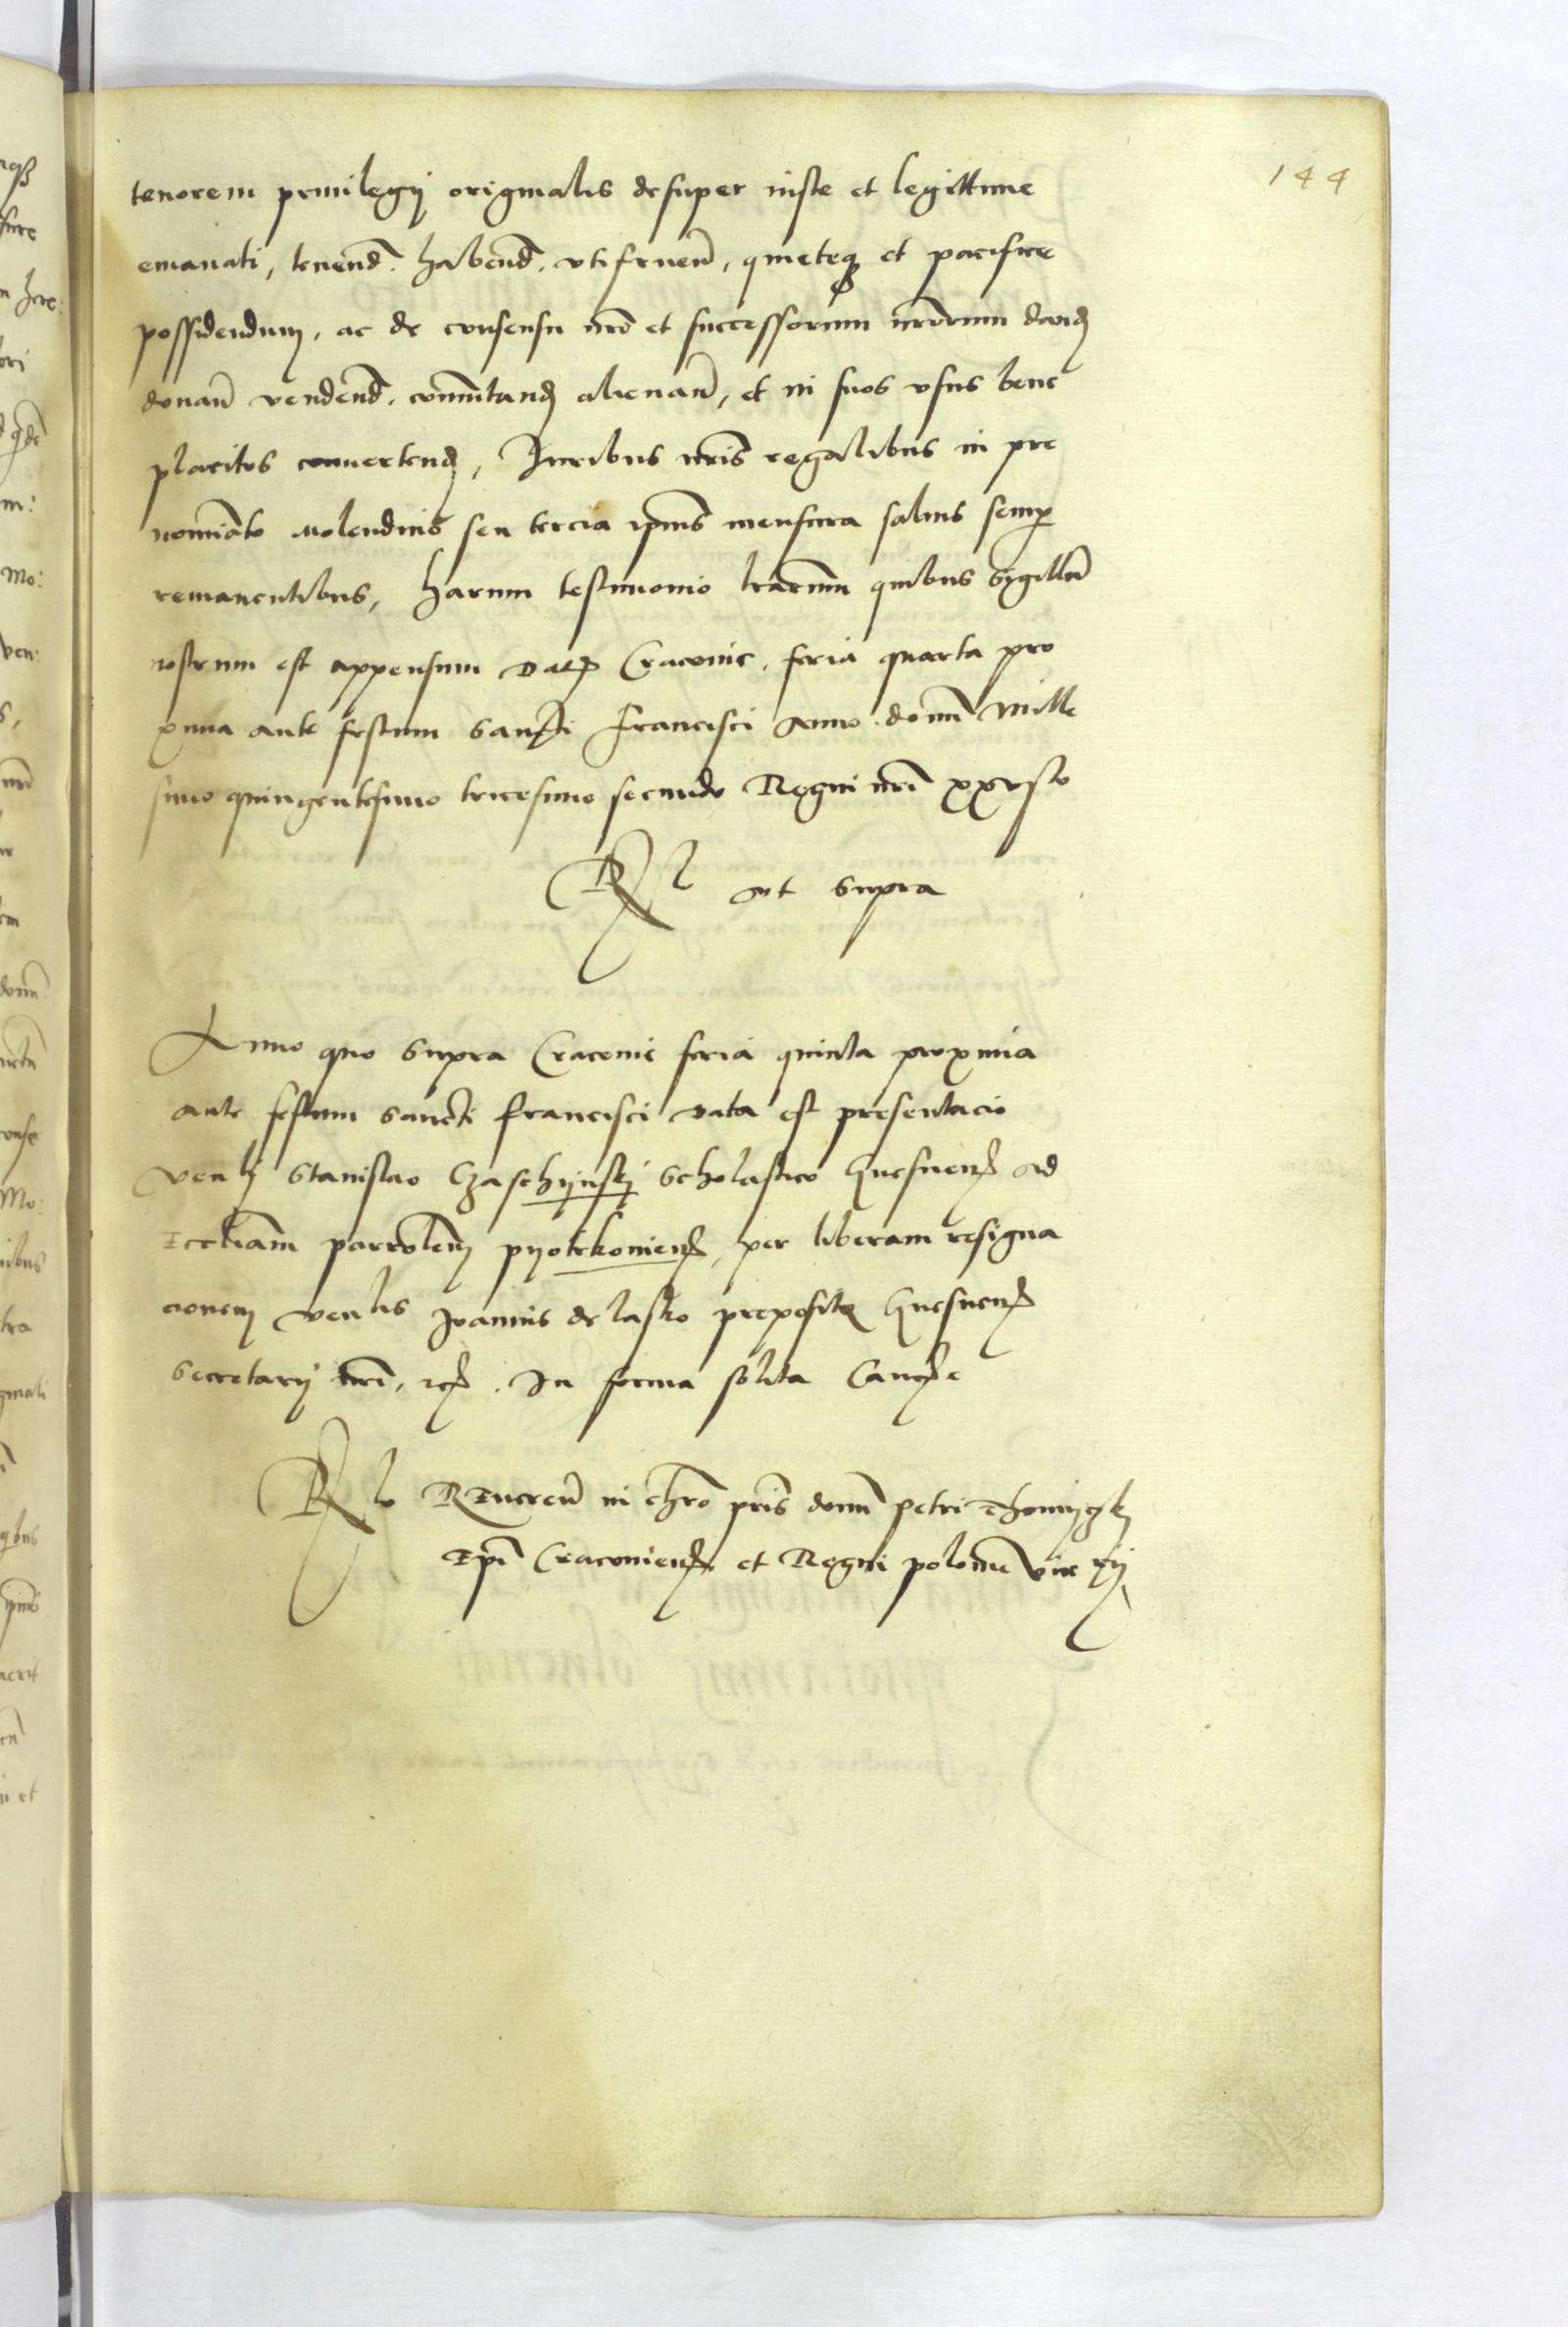 144
tenorem priuilegij originalis desuper iuste et legittime
emanati, tenend. habend. vtifruen̄, quieteq; et pacifice
possidendum, ac de consensu nr̄o et successorum nr̄orum dand
donan̄ vendend. commutand alienan̄, et in suos vsus bene
placitos conuertend, Juribus nr̄is regalibus in pre
nomiato Molendino seu tercia ip̄ius mensura saluis semp
remanentibus, harum testimonio lr̄arum quibus Sigillū
nostrum est appensum Datp Cracouie, feria quarta pro
xima ante festum Sancti francisci Anno domī Mille
simo quingentesimo tricesimo secundo Regni nr̄i xxvsto
Rl vt Supra
Anno quo Supra Cracouie feria quinta proxima
ante festum Sancti francisci Data est presentacio
Venlj Stanislao Czaschijnskj Scholastico Gnesnen ad
Eccliam parrolem pyotrkouien, per liberam resigna
cionem Venlis Joannis de lasko prepositi Gnesnen
Secretarij nr̄i, rc. In forma solita Canc̄e
Rlo Reueren̄ in chr̄o pr̄is domī Petri Thomyczkj
Ep̄i Cracouien et Regni polonie Vice rij